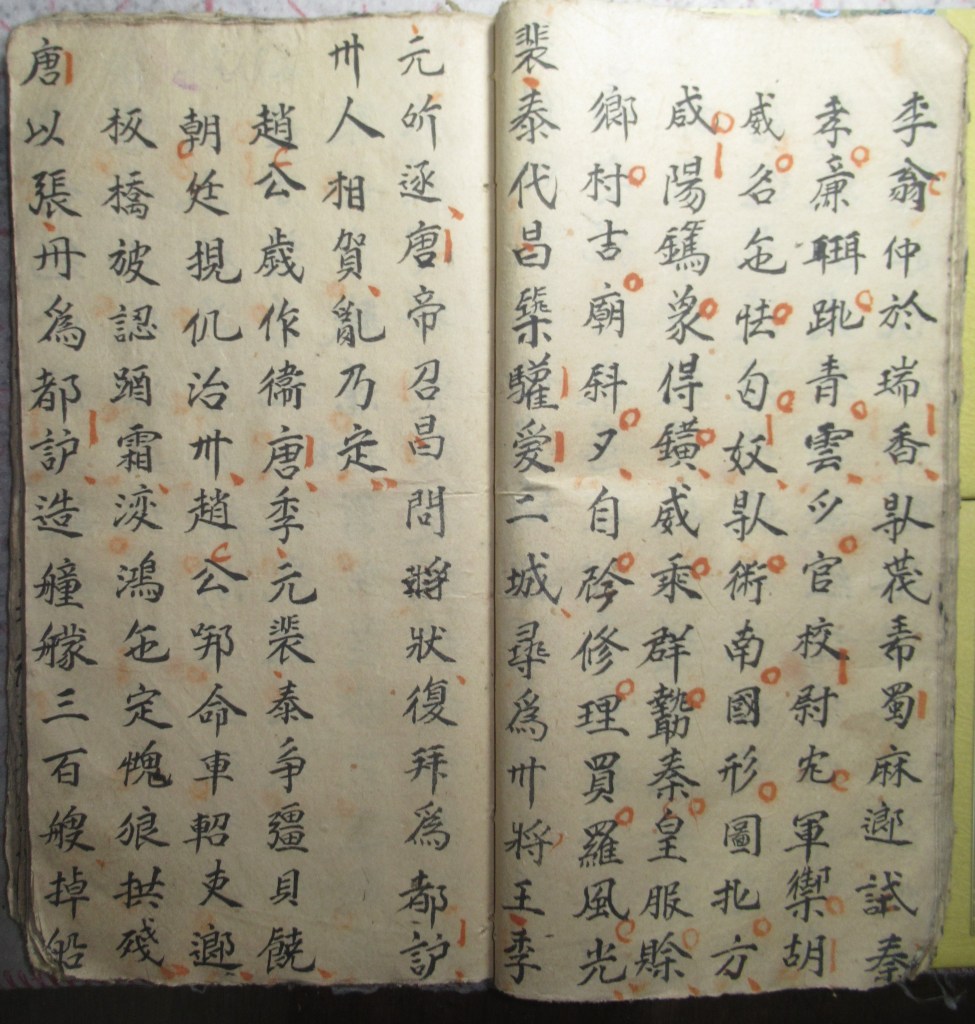 李翁仲於瑞香𠊛茂希蜀麻𨓐試秦
孝廉跳青雲𫜵官校尉軍禦胡
威名乜怯匈奴𠊛術南國形圖北方
咸陽鐫象得鐄威乘群秦皇服賒
鄉村吉廟斜夕自矜修理買羅風光
裴泰代昌築驩愛二城尋爲州將王季
元所逐唐帝召昌問將狀復拜爲都護
州人相賀亂乃定
趙公歲作衛唐季元裴泰爭疆貝饒
朝廷挸仉治州趙公命車軺吏𨓐
板橋披認霜湥鴻乜定愧狼拱殘
唐以張丹爲都護造艟艨三百艘掉船